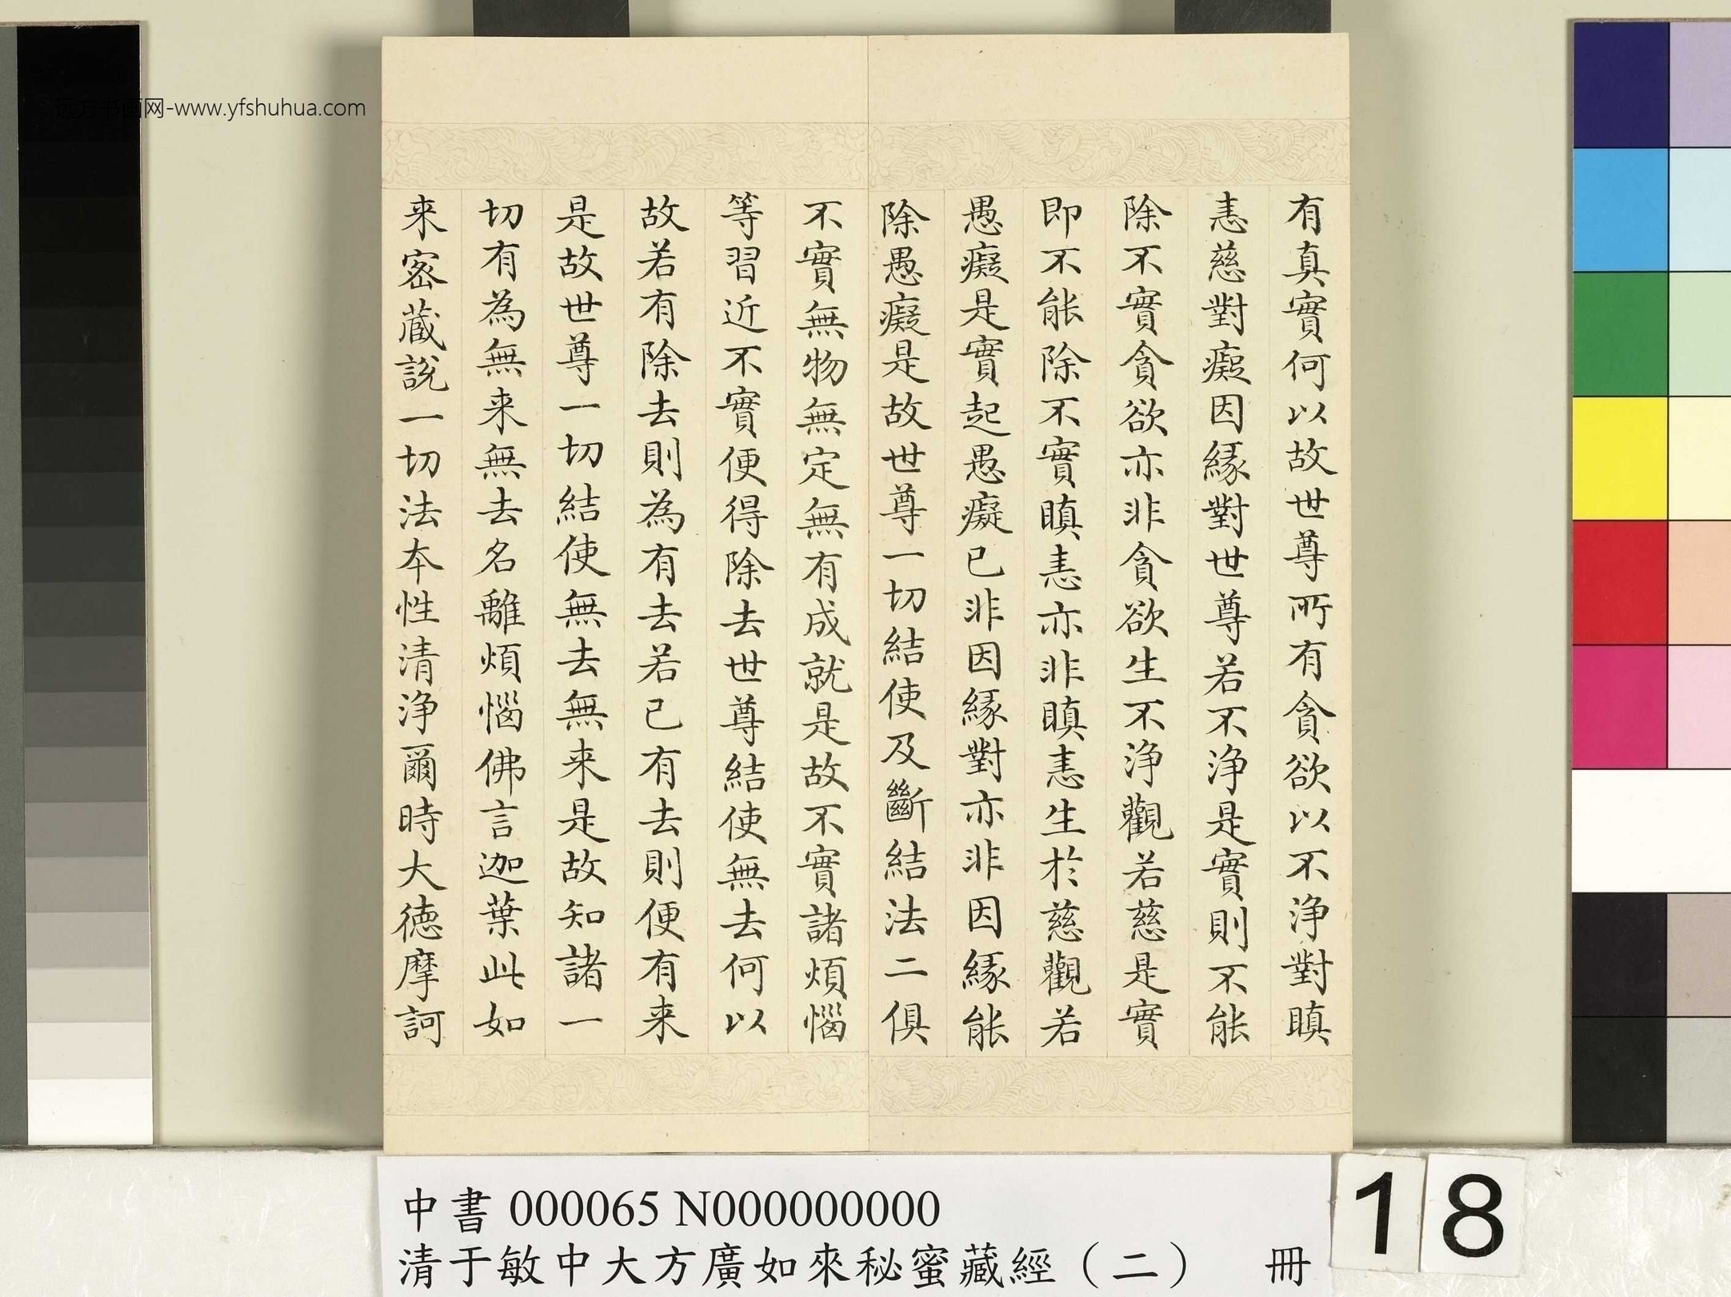 有真實何以故世尊所有貪欲以不淨對瞋
恚慈對癡因緣對世尊若不淨是實則不能
除不實貪欲亦非貪欲生不淨觀若慈是實
即不能除不實瞋恚亦非瞋恚生於慈觀若
愚癡是實起愚癡已非因緣對亦非因緣能
除愚癡是故世尊一切結使及斷結法二俱
不實無物無定無有成就是故不實諸煩惱
等習近不實便得除去世尊結使無去何以
故若有除去則為有去若已有去則便有来
是故世尊一切結使無去無来是故知諸一
切有為無来無去名離煩惱佛言迦葉此如
来密藏說一切法本性清淨爾時大德摩訶
远方书画网-www.yfshuhua.com
中書 000065 N000000000
清于敏中大方廣如來秘蜜藏經（二） 冊
18